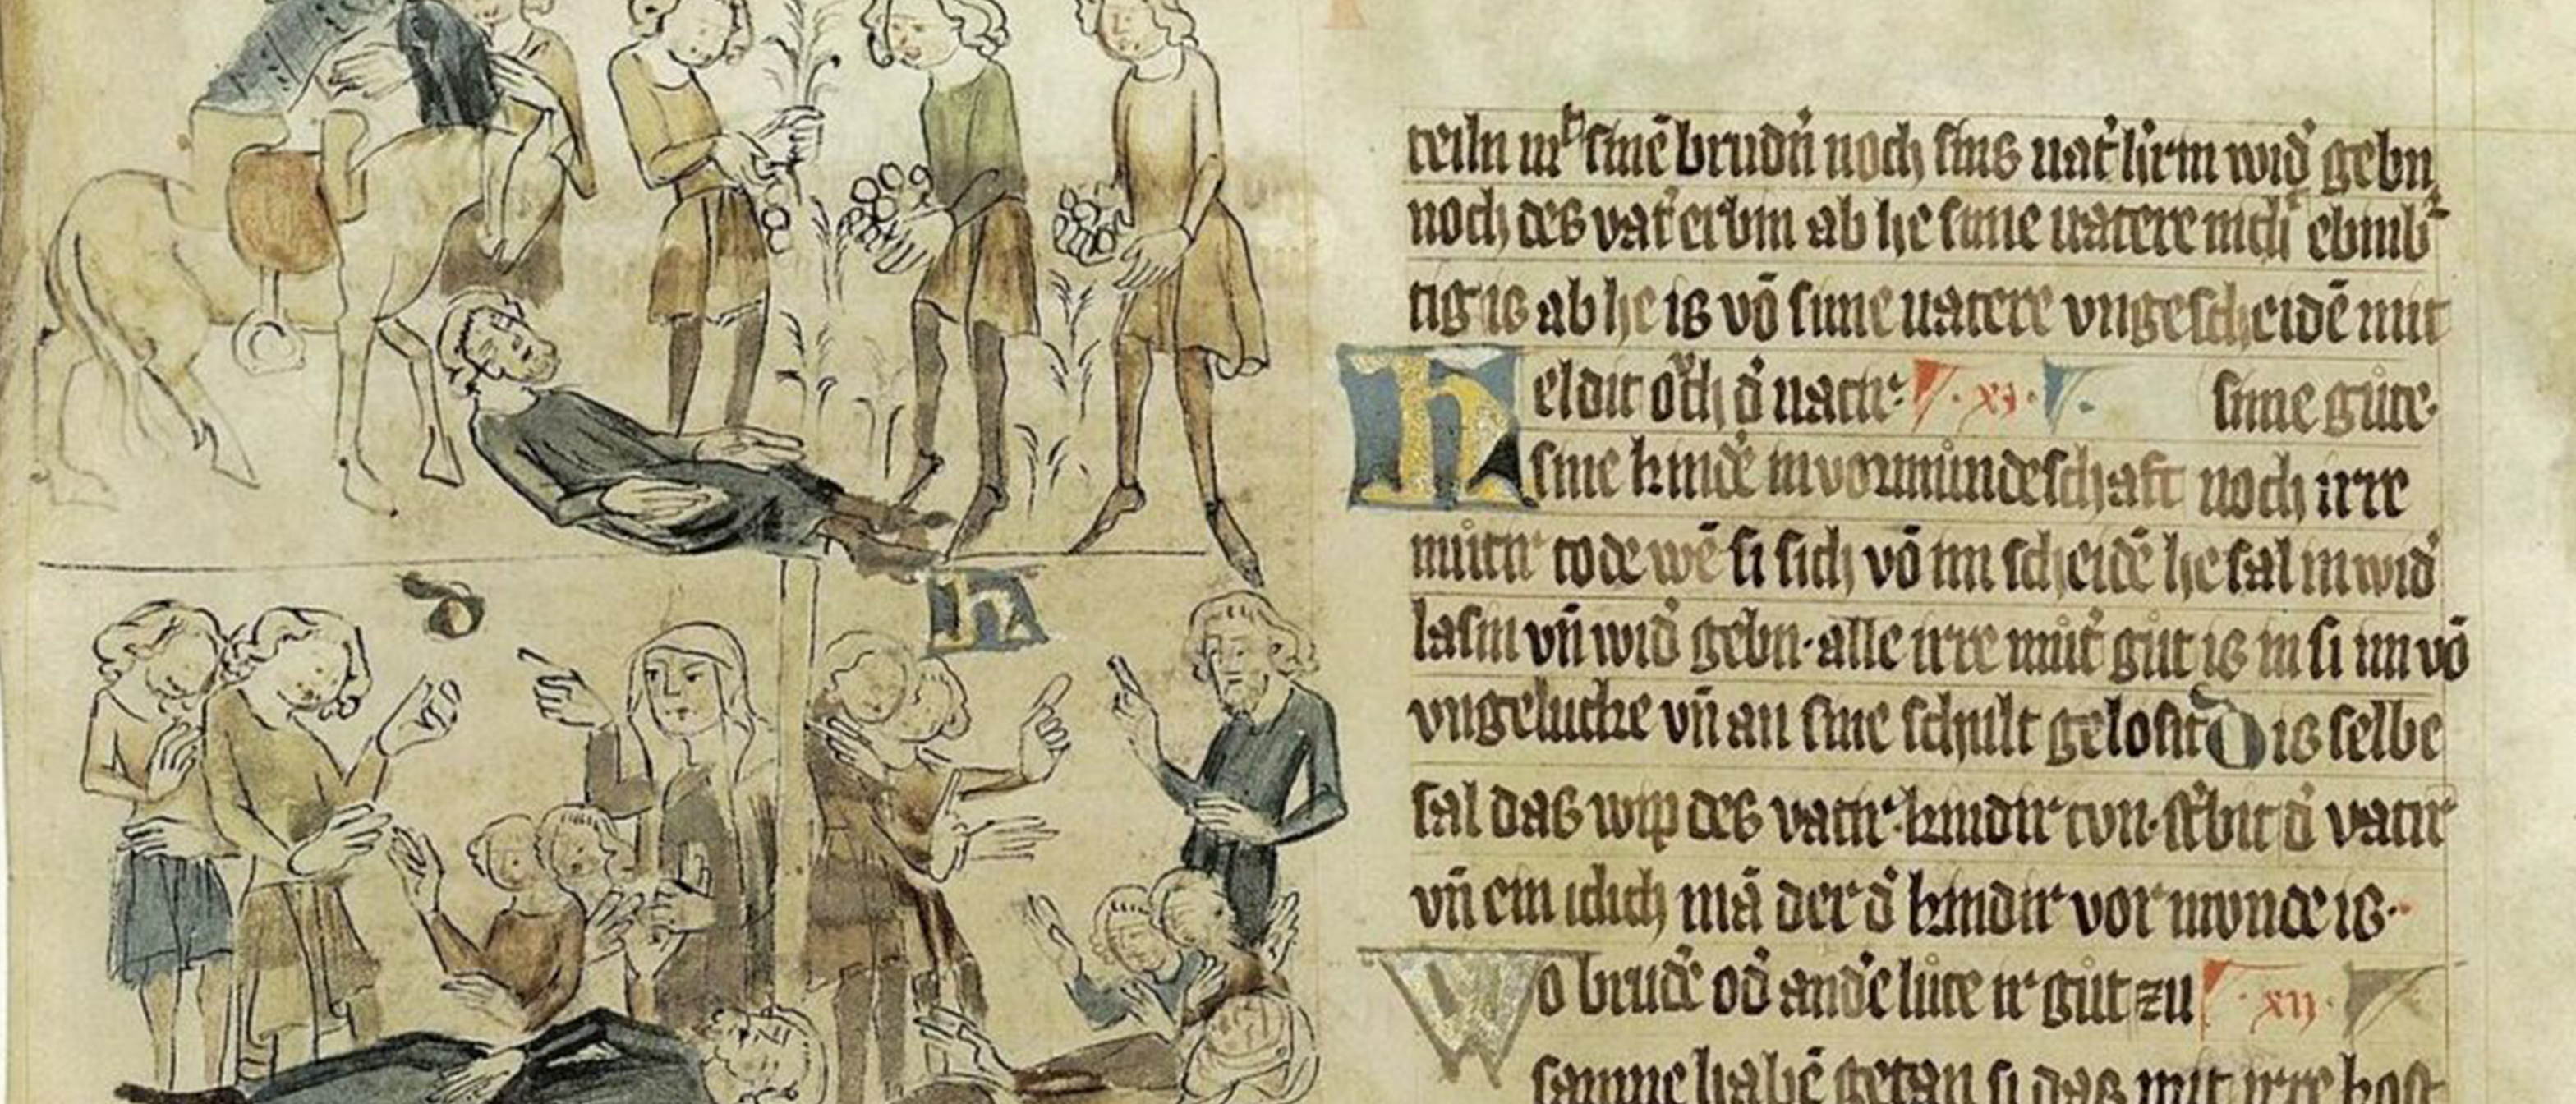 teiln mit sinē brudn̄ noch sins uat' hirin wid' gebn
noch des vat' erbin ab he sime uatere nicht ebinb'
tig is ab he is vō sime uatere vngescheidē mit
Heldit och d' uatir · xi · sine
sine kind'e in vormundeschaft noch irre
mutir tode wē si sich vō im scheidē he sal in wid'
lasin vn̄ wid' gebn · alle irre mut' gut is in si im vō
vngelucke vn̄ an sine schult gelosit Dis selbe
sal das wip des vatir kindir tvn · st'bit d' vatir
vn̄ ein iclich mā der d' kindir vormunde is ·
Wo brud'e od' and'e lute ir gut zu · xii ·
samne habē getan si das mit irre kost
D
H